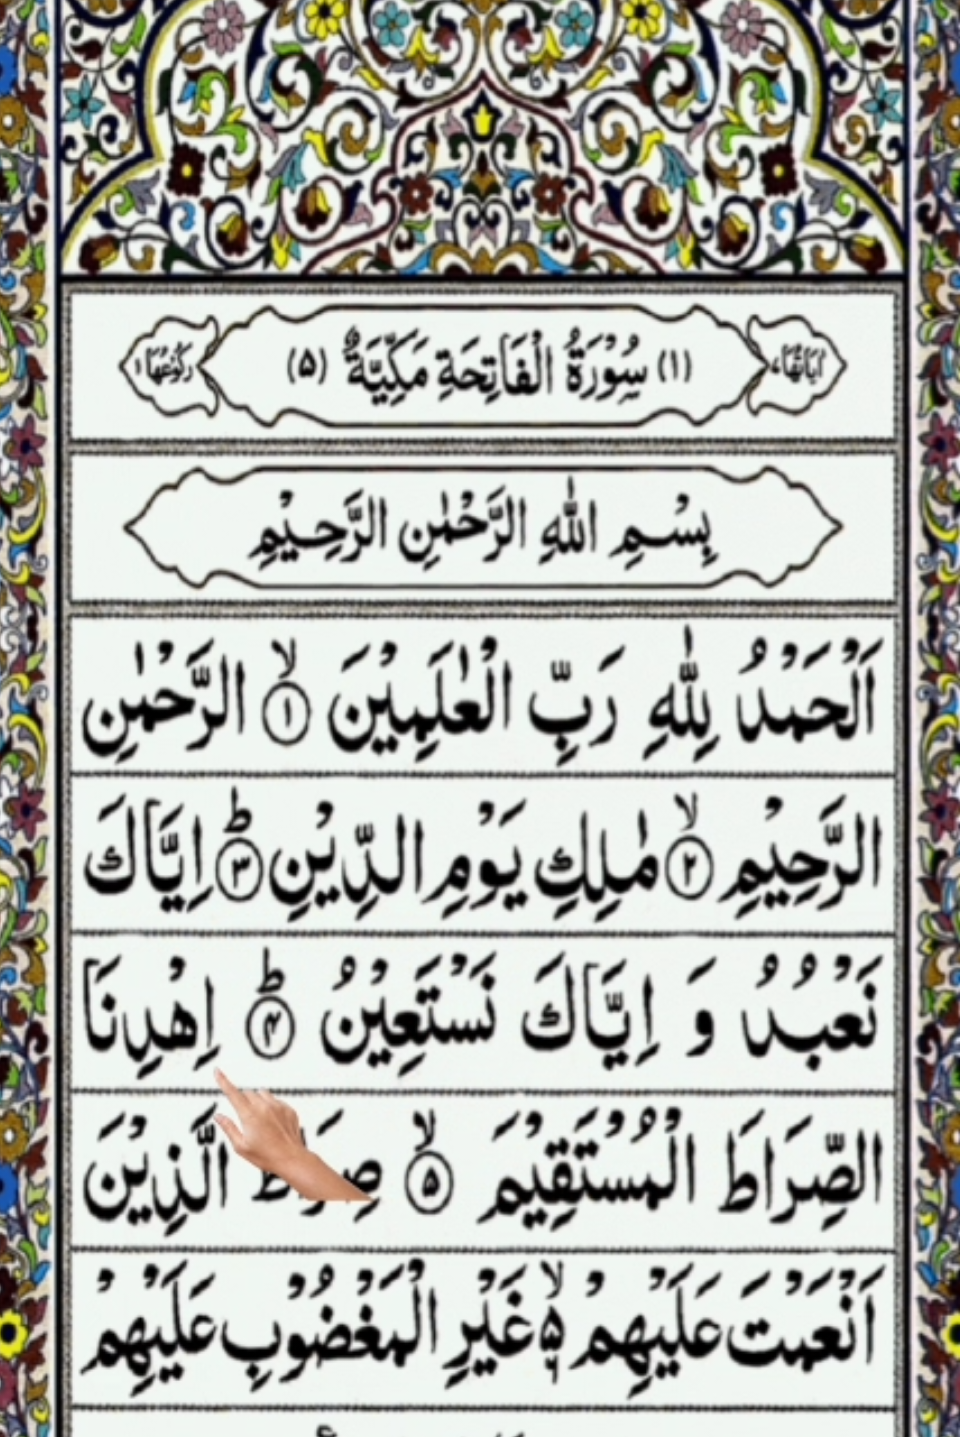 اٰیَاتُهَا ۷ (۱) سُوْرَةُ الْفَاتِحَةِ مَكِّیَّةٌ (۵) رُكُوْعُهَا ۱
بِسْمِ اللّٰهِ الرَّحْمٰنِ الرَّحِیْمِ
اَلْحَمْدُ لِلّٰهِ رَبِّ الْعٰلَمِیْنَ ۙ﴿۱﴾ الرَّحْمٰنِ
الرَّحِیْمِ ۙ﴿۲﴾ مٰلِكِ یَوْمِ الدِّیْنِ ؕ﴿۳﴾ اِیَّاكَ
نَعْبُدُ وَ اِیَّاكَ نَسْتَعِیْنُ ؕ﴿۴﴾ اِهْدِنَا
الصِّرَاطَ الْمُسْتَقِیْمَ ۙ﴿۵﴾ صِرَاطَ الَّذِیْنَ
اَنْعَمْتَ عَلَیْهِمْ ۙ۵ ۶ غَیْرِ الْمَغْضُوْبِ عَلَیْهِمْ